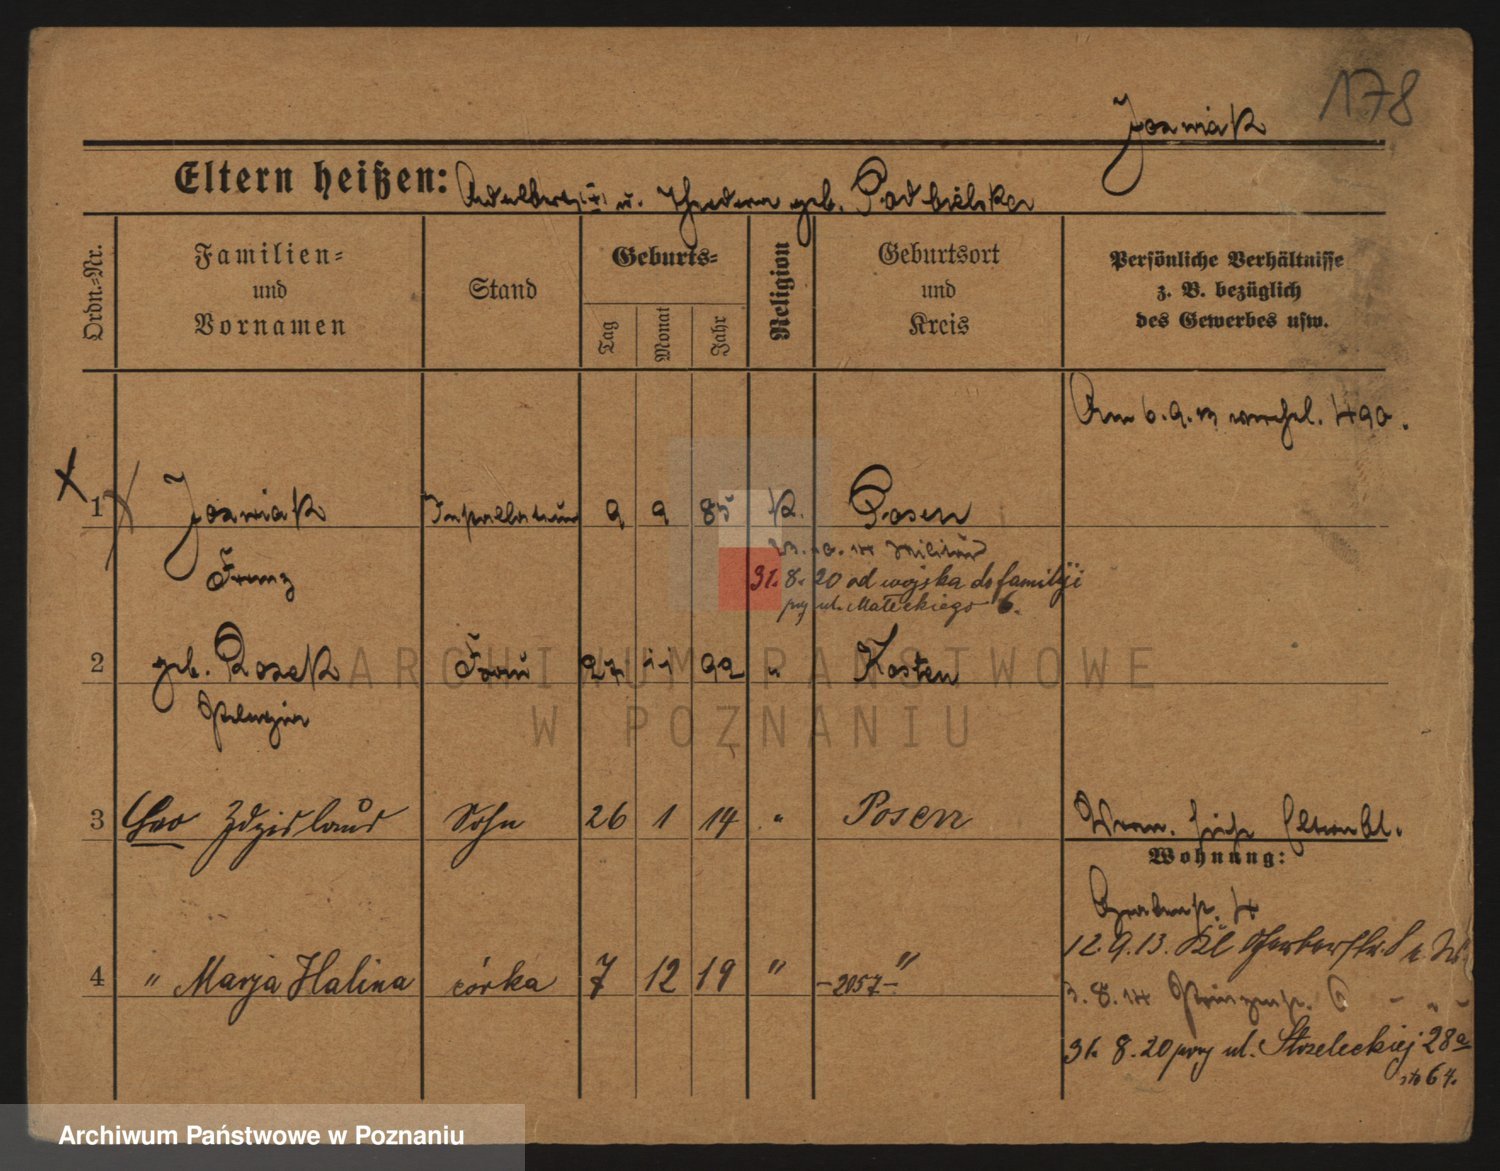 178
Jozwiak
Eltern heißen: Adalbert u. Theodora geb. Podbielska
Ordn.-Nr.
Familien-
und
Vornamen
Stand
Geburts-
Tag
Monat
Jahr
Religion
Geburtsort
und
Kreis
Persönliche Verhältnisse
z. B. bezüglich
des Gewerbes usw.
Am 6.9.13 490.
1 Jozwiak Installateur 9 9 85 K. Posen
Franz
Militär
31. 8. 20 od wojska do familji
przy ul. Małeckiego 6.
2 geb. Rosek Frau 11 92 " Kosten
Pelagia
3 Leo Zdzislaus Sohn 26 1 14 " Posen
Verm. siehe Elternbl.
Wohnung:
Grabenstr. 4
12.9.13. Kl. Gerberstr. 8
4 " Marja Halina córka 7 12 19 " - 2057 - "
3.8.14 Prinzenstr. - " -
31. 8. 20 przy ul. Strzeleckiej 28a
64.
ARCHIWUM PAŃSTWOWE
W POZNANIU
Archiwum Państwowe w Poznaniu